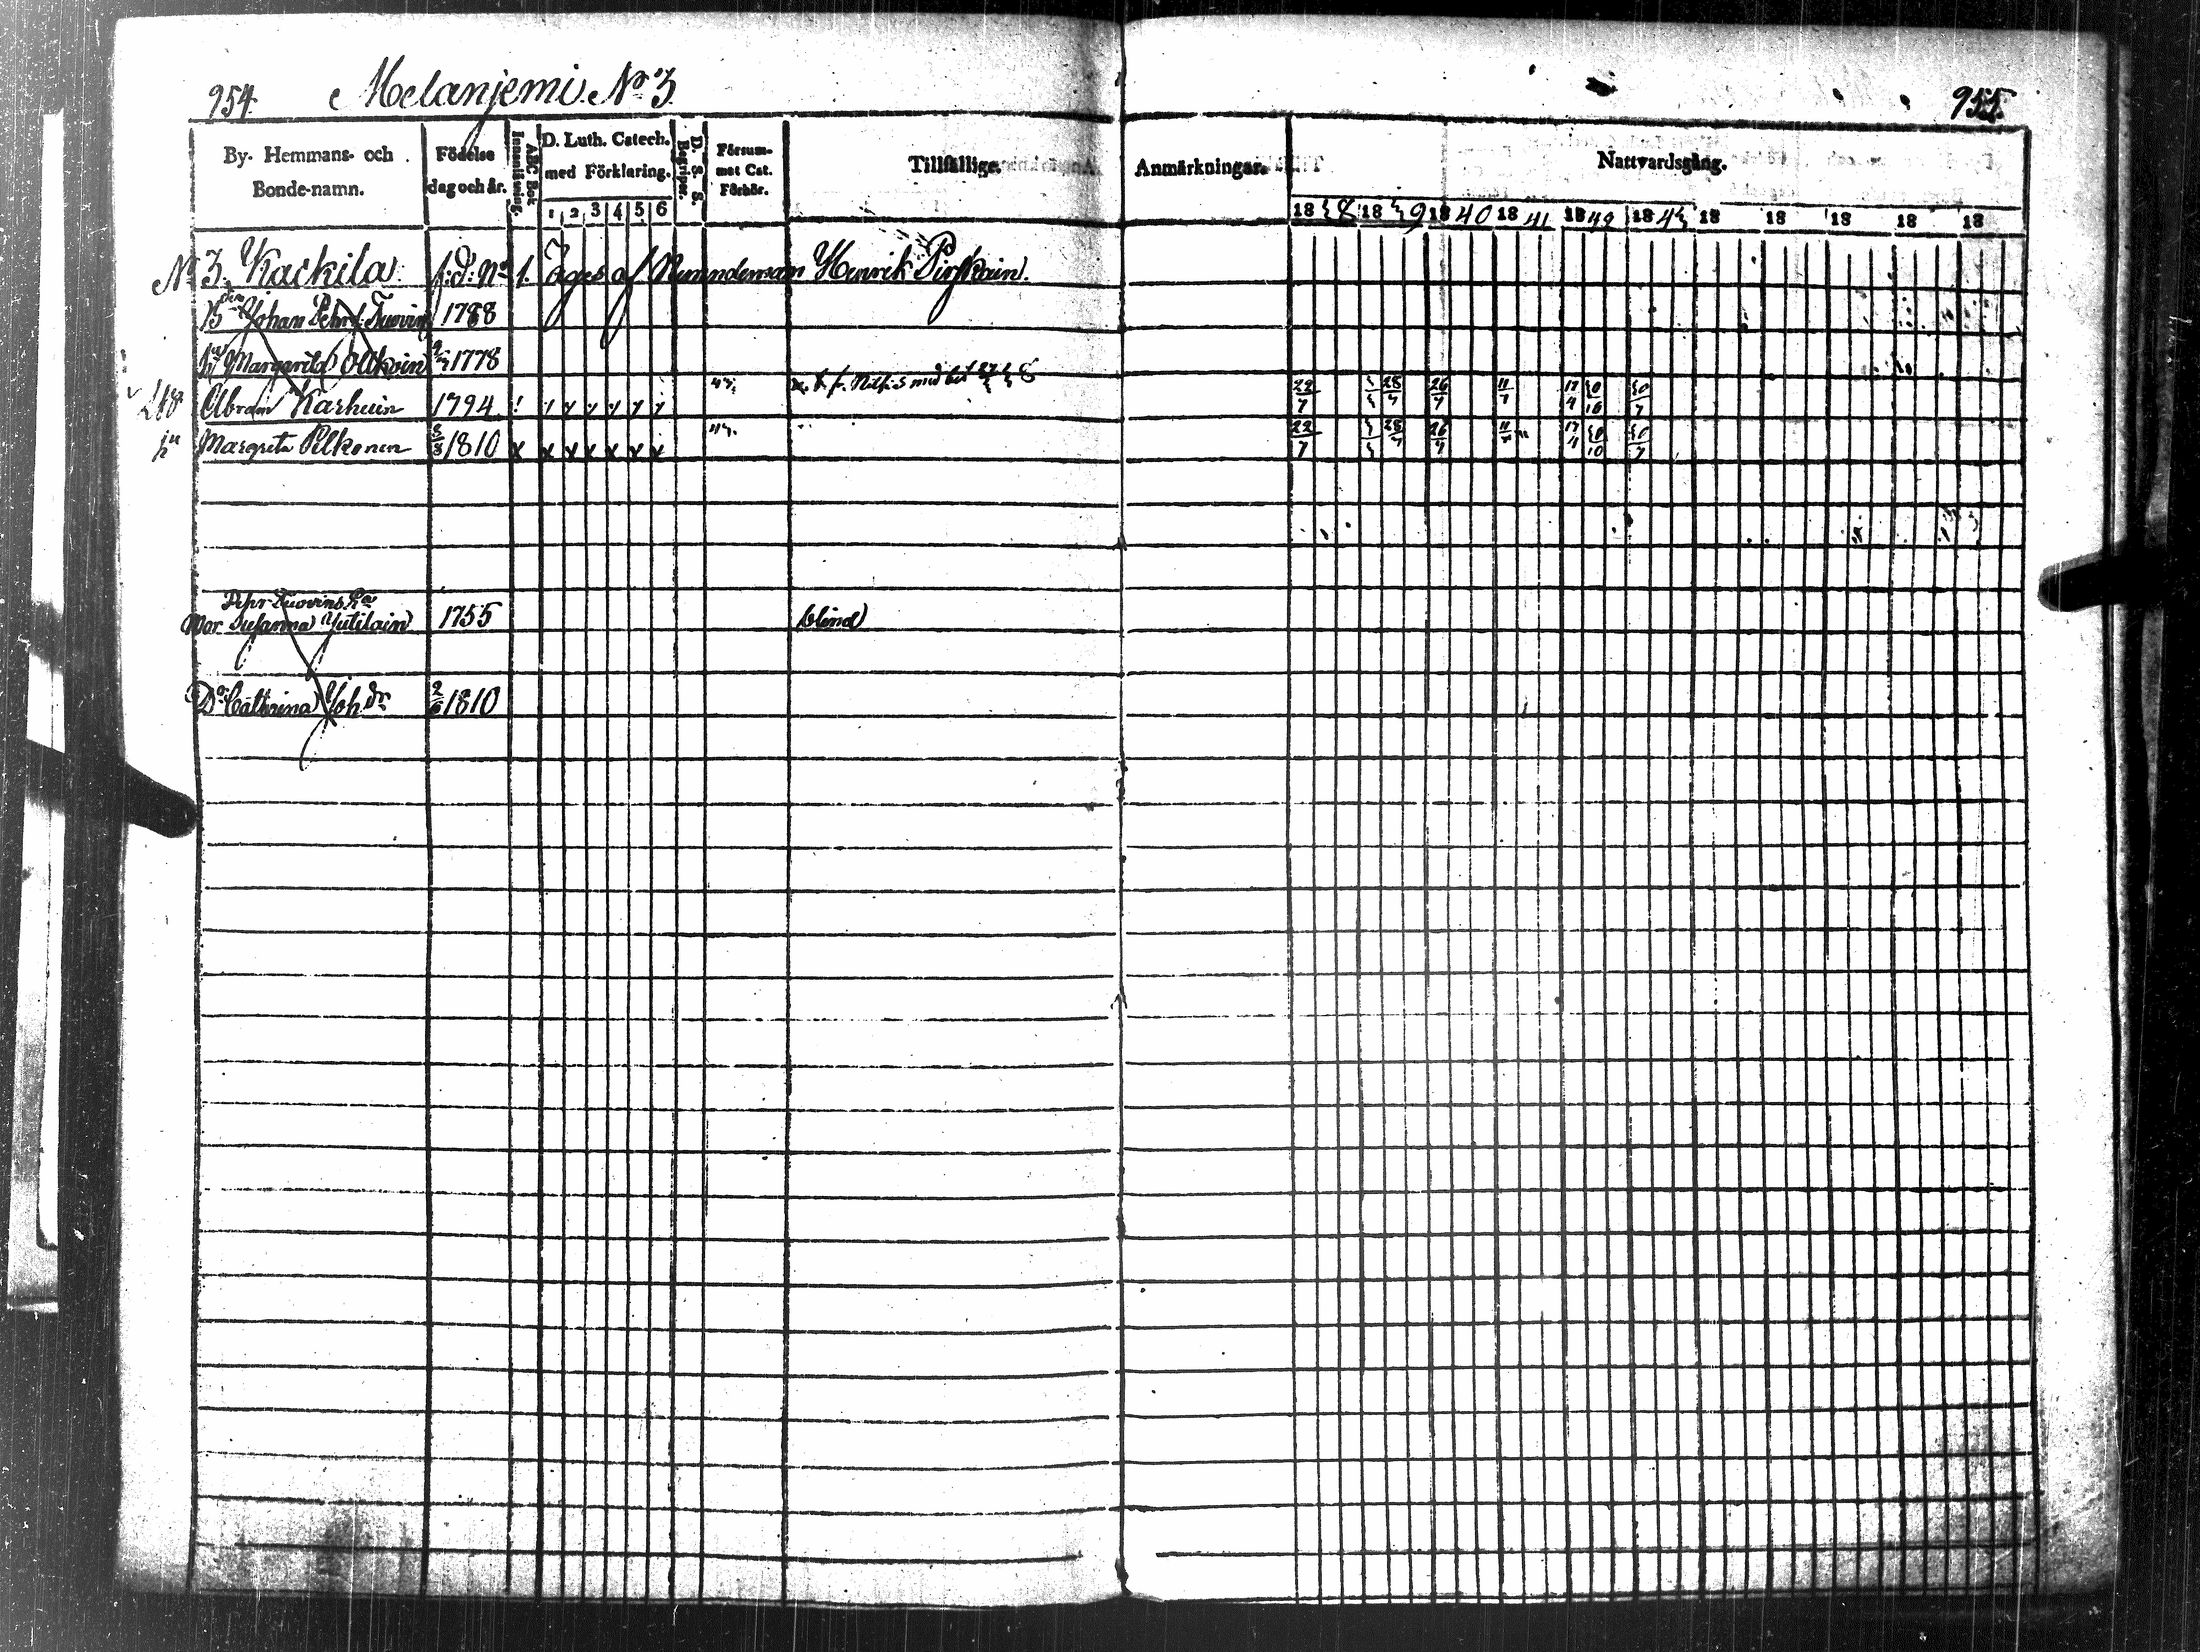 954. Melanjemi. No 3.
955.
By- Hemmans- och Bonde-namn.
Födelse dag och år.
ABC Bok Innanläsning.
D. Luth. Catech. med Förklaring.
1 2 3 4 5 6
D. S. S. Begriper.
Försum- mat Cat. Förhör.
Tillfällige.
Anmärkningar.
Nattvardsgång.
18 38 18 39 18 40 18 41 18 42 18 43 18 18 18 18 18
No 3. Kackila f: d: No 1. Äges af Henrik
Johan Pehrs: Tuovin 1788
hu Margareta 1778
Abram Karhuin 1794 22/7 28/7 26/7 11/7 17/4 30/10 30/7
hu Margreta Pelkonen 1810 22/7 28/7 26/7 11/7 17/4 30/10 30/7
Pehr Tuovins
Mor Susanna 1755 blind
Do Cathrina Joh. dr 1810